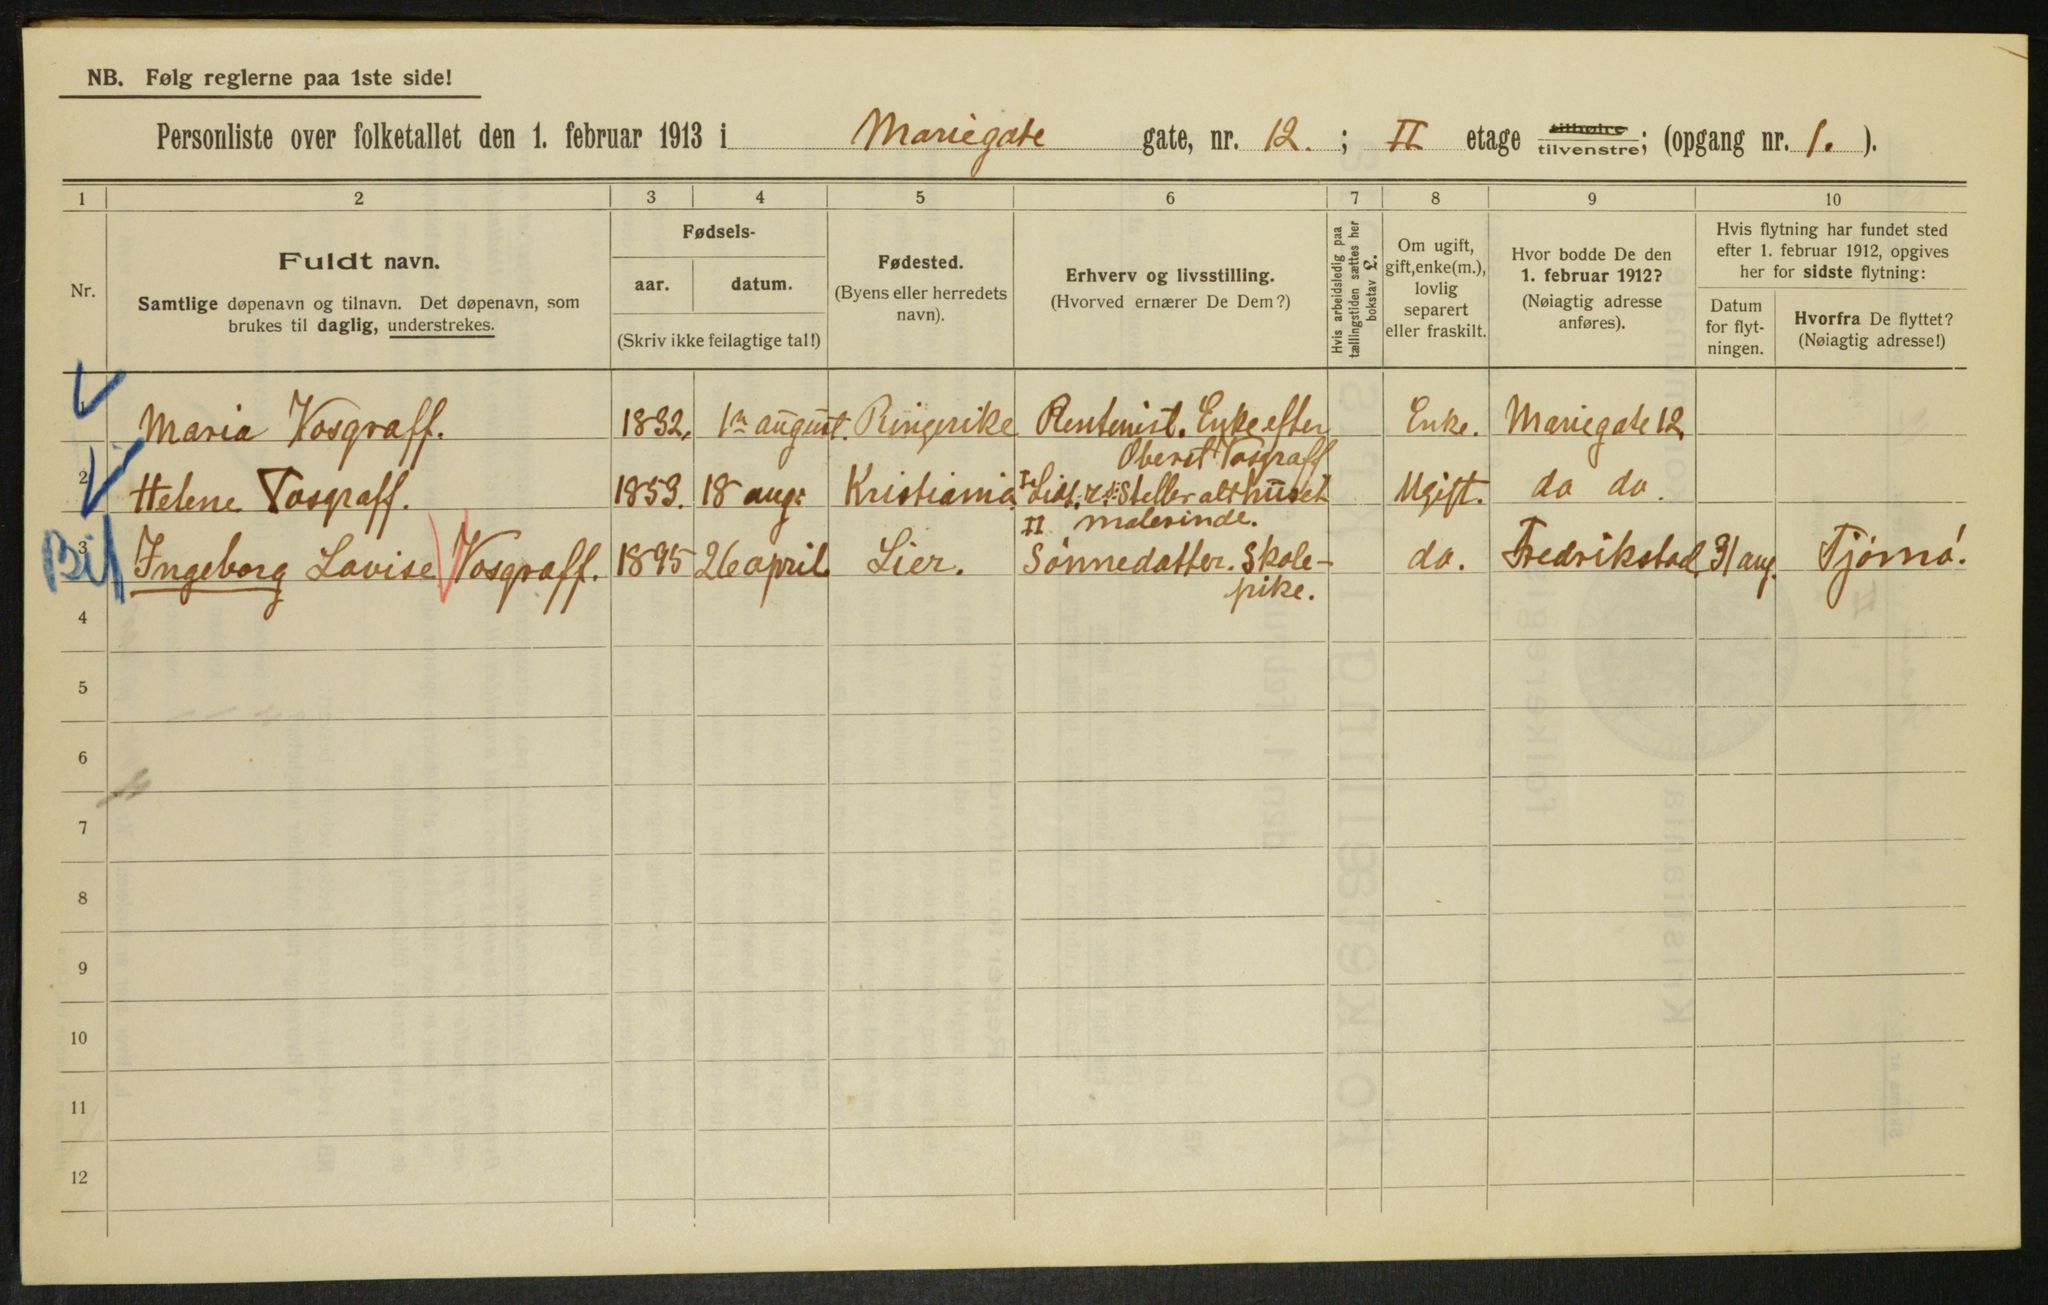 NB. Følg reglerne paa 1ste side!
Personliste over folketallet den 1. februar 1913 i Mariegate gate, nr. 12. ; II etage tilhøire tilvenstre; (opgang nr. 1. ).
1 2 3 4 5 6 7 8 9 10
Nr.
Fuldt navn.
Samtlige døpenavn og tilnavn. Det døpenavn, som
brukes til daglig, understrekes.
Fødsels-
aar. datum.
(Skriv ikke feilagtige tal!)
Fødested.
(Byens eller herredets
navn).
Erhverv og livsstilling.
(Hvorved ernærer De Dem?)
Hvis arbeidsledig paa
tællingstiden sættes her
bokstav L.
Om ugift,
gift, enke(m.),
lovlig
separert
eller fraskilt.
Hvor bodde De den
1. februar 1912?
(Nøiagtig adresse
anføres).
Hvis flytning har fundet sted
efter 1. februar 1912, opgives
her for sidste flytning:
Datum
for flyt-
ningen.
Hvorfra De flyttet?
(Nøiagtig adresse!)
1 Maria Vosgraff. 1832. 1ste august. Ringerike Rentenist. Enke efter Enke. Mariegate 12.
Oberst Vosgraff
2 Helene Vosgraff. 1853. 18 aug: Kristiania Ugift. do do.
II malerinde.
Bif 3 Ingeborg Lovise Vosgraff. 1895 26 april Lier. Sønnedatter. Skole- do. Fredrikstad 31 aug. Tjømø.
pike.
4
5
6
7
8
9
10
11
12